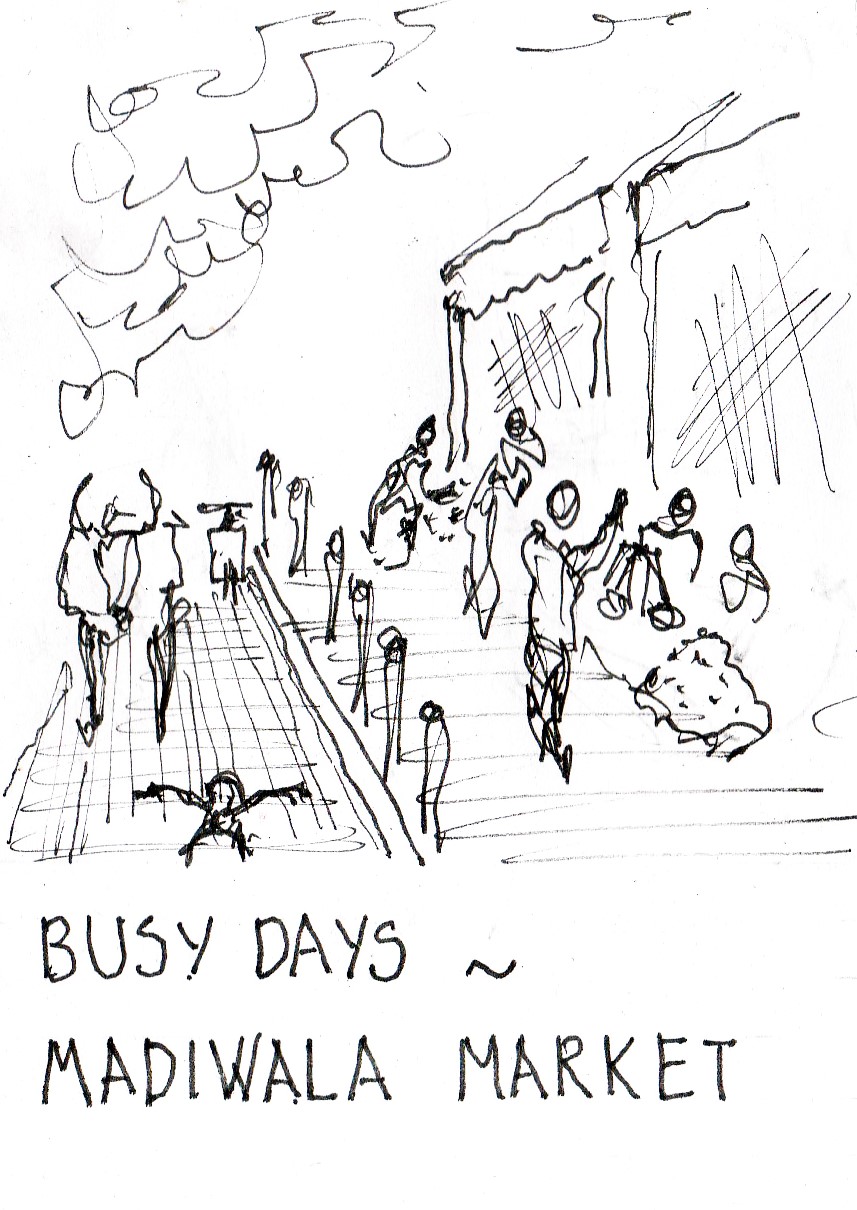 BUSY DAYS ~
MADIWALA MARKET